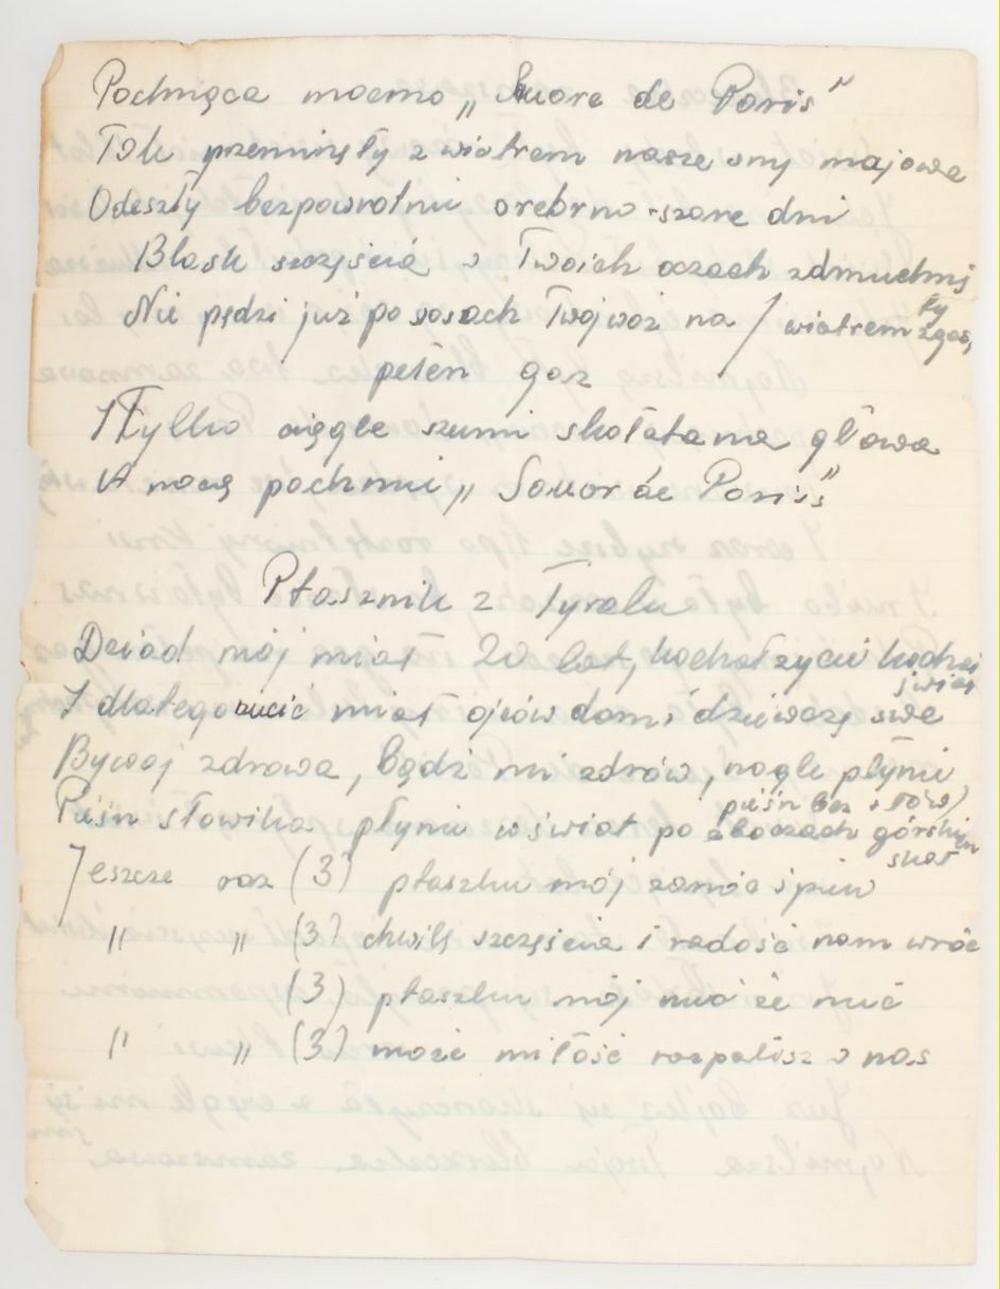 Pachnąca mocno „Suore de Paris"
Tak przeminęły z wiatrem nasze sny majowe
Odeszły bezpowrotnie srebrno-szare dni
Blask szczęścia w Twoich oczach zdmuchnę
Nie pędzi już po szosach Twój wóz na / wiatrem zgas, ły
pełen gaz
I Tylko ciągle szumi skołatana głowa
A nocą pachnie „Souor de Paris"
Ptasznik z Tyrolu
Dziad mój miał 20 lat, kochał życie kochał
świat
I dlatego rzucić miał ojców dom i dziewczę swe
Bywaj zdrowa, bądź mi zdrów, nagle płynie
pieśń bez słów)
Pieśń słowika płynie w świat po zboczach górskich
skał
Jeszcze raz (3) ptaszku mój zanóć śpiew
" " (3) chwilę szczęścia i radość nam wróć
(3) ptaszku mój nuć że nuć
" " (3) może miłość rozpalisz w nas